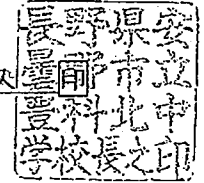 長野県安
曇野市立
豊科北中
学校長之印